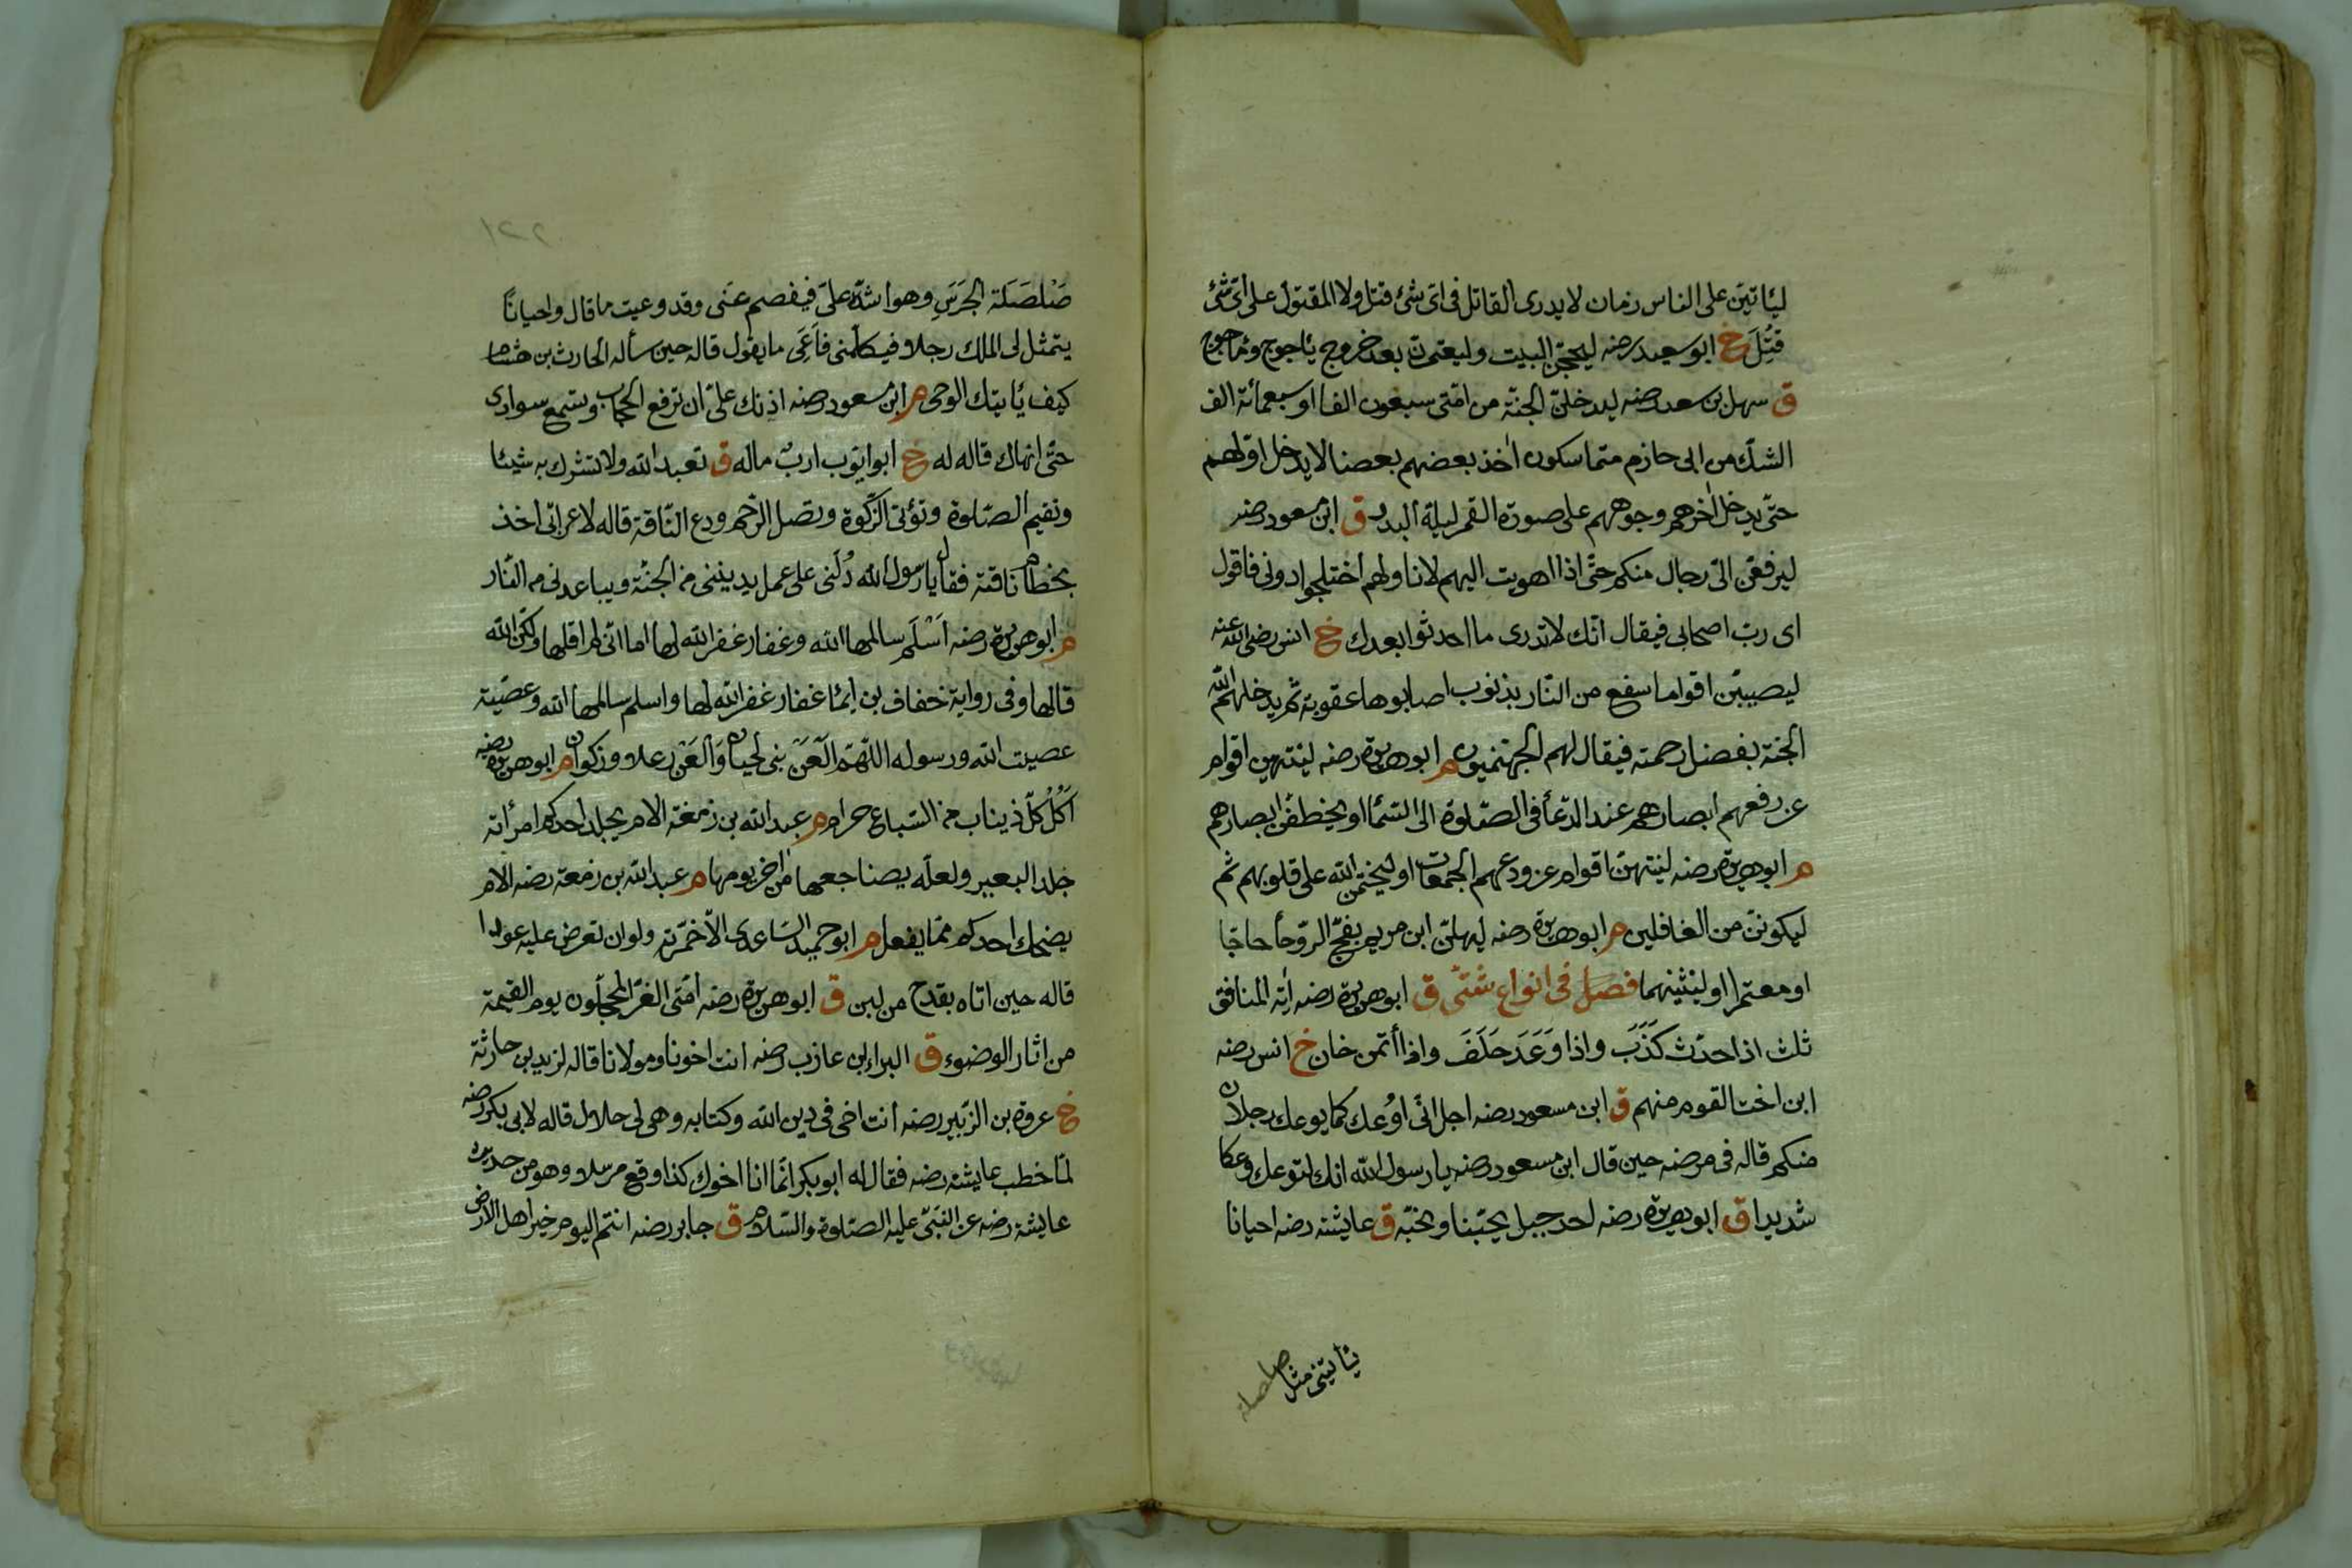 ليأتين على الناس زمان لا يدرى القاتل فى اى شئ قتل ولا المقتول على اى شئ
قُتِلَ خ ابو سعيد رضه ليحجّن البيت وليعتمرن بعد خروج يأجوج ومأجوج
ق سهل بن سعد رضه ليدخلن الجنّة من امّتى سبعون الفا او سبعمائة الف
الشك من ابى حازم متماسكون اخذ بعضهم بعضا لا يدخل اوّلهم
حتّى يدخل اخرهم وجوههم على صورة القمر ليلة البدر ق ابن مسعود رضه
ليرفعنّ الىّ رجال منكم حتّى اذا اهويت اليهم لاناولهم اختلجوا دونى فاقول
اى ربّ اصحابى فيقال انّك لا تدرى ما احدثوا بعدك خ انس رضى الله عنه
ليصيبنّ اقواما سفع من النّار بذنوب اصابوها عقوبة ثم يدخلهم الله
الجنّة بفضل رحمته فيقال لهم الجهنّميون م ابو هريرة رضه لينتهين اقوام
عن رفعهم ابصارهم عند الدّعأ فى الصّلوة الى السّمأ او ليخطفنّ ابصارهم
م ابو هريرة رضه لينتهينّ اقوام عن ودعهم الجمعات او ليختمنّ الله على قلوبهم ثم
ليكوننّ من الغافلين م ابو هريرة رضه ليهلّنّ ابن مريم بفجّ الرّوحأ حاجّا
او معتمرا او ليثنينهما فصل فى انواع شتّى ق ابو هريرة رضه اية المنافق
ثلث اذا حدّث كَذَبَ واذا وَعَدَ خَلَفَ واذا أتمن خان خ انس رضه
ابن اخت القوم منهم ق ابن مسعود رضه اجل انّى اُوعك كما يوعك رجلان
منكم قاله فى مرضه حين قال ابن مسعود رضه يا رسول الله انك لتوعك وعكا
شديدا ق ابو هريرة رضه احد جبل يحبّنا ونحبّه ق عايشة رضه احيانا
يأتينى مثل صلصلة
١٢٢
صَلصَلَة الجَرَسِ وهو اشدّه علىّ فيفصم عنّى وقد وعيت ما قال واحيانًا
يتمثل لى الملك رجلا فيكلّمنى فَاَعِى ما يقول قاله حين سأله الحارث بن هشام
كيف يأتيك الوحى م ابن مسعود رضه اذنك علىّ ان ترفع الحجاب وتسمع سوادى
حتّى انهاك قاله له خ ابو ايّوب اربٌ ماله ق تعبد الله ولا تشرك به شيئا
وتقيم الصّلوة وتؤتى الزّكوة وتصل الرّحم ودع النّاقة قاله لاعرابّى اخذ
بخطام ناقته فقال يا رسول الله دُلّنى على عمل يدنينى من الجنّة ويباعدنى من النّار
م ابو هريرة رضه اَسْلَم سالمها الله وغفار غفر الله لها اما انّى لم اقلها ولكن الله
قالها وفى رواية خفاف بن ايمأ غفار غفر الله لها واسلم سالمها الله وعصيّة
عصيت الله ورسوله اللّهمّ العَنْ بنى لحيان وَالعَنْ رعلا وذكوان م ابو هريرة رضه
اَكْلُ كلّ ذى ناب من السّباع حرام م عبد الله بن زمعة الام يجلد احدكم امرأته
جلد البعير ولعلّه يضاجعها من اخر يومها م عبد الله بن زمعة رضه الام
يضحك احدكم ممّا يفعل م ابو حميد السّاعدى الّا خمّرته ولو ان تعرض عليه عودا
قاله حين اتاه بقدح من لبن ق ابو هريرة رضه امّتى الغرّ المحجّلون يوم القيمة
من اثار الوضوء ق البراء بن عازب رضه انت اخونا ومولانا قاله لزيد بن حارثة
خ عروة بن الزّبير رضه انت اخى فى دين الله وكتابه وهى لى حلال قاله لابى بكر رضه
لمّا خطب عايشة رضه فقال له ابو بكر انّما انا اخوك كذا وقع مرسلا وهو من حديث
عايشة رضه عن النّبىّ عليه الصّلوة والسّلام ق جابر رضه انتم اليوم خير اهل الارض